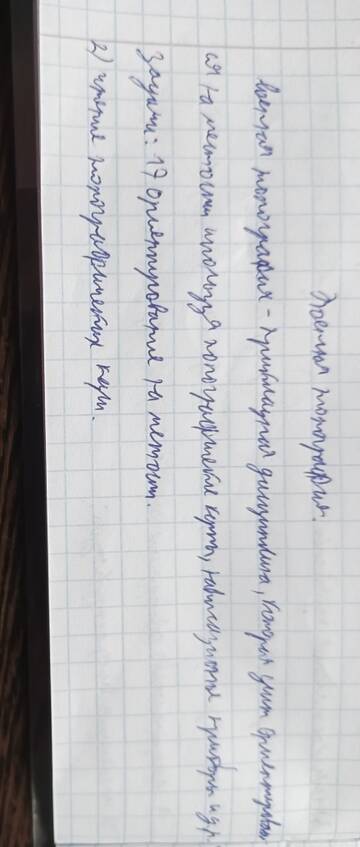 Военная топография.
Военная топография - прикладная дисциплина, которая учит ориентироват
ся на местности используя топографические карты, навигационные приборы и др.
Задачи: 1) Ориентирование на местност.
2) чтение топографических карт.